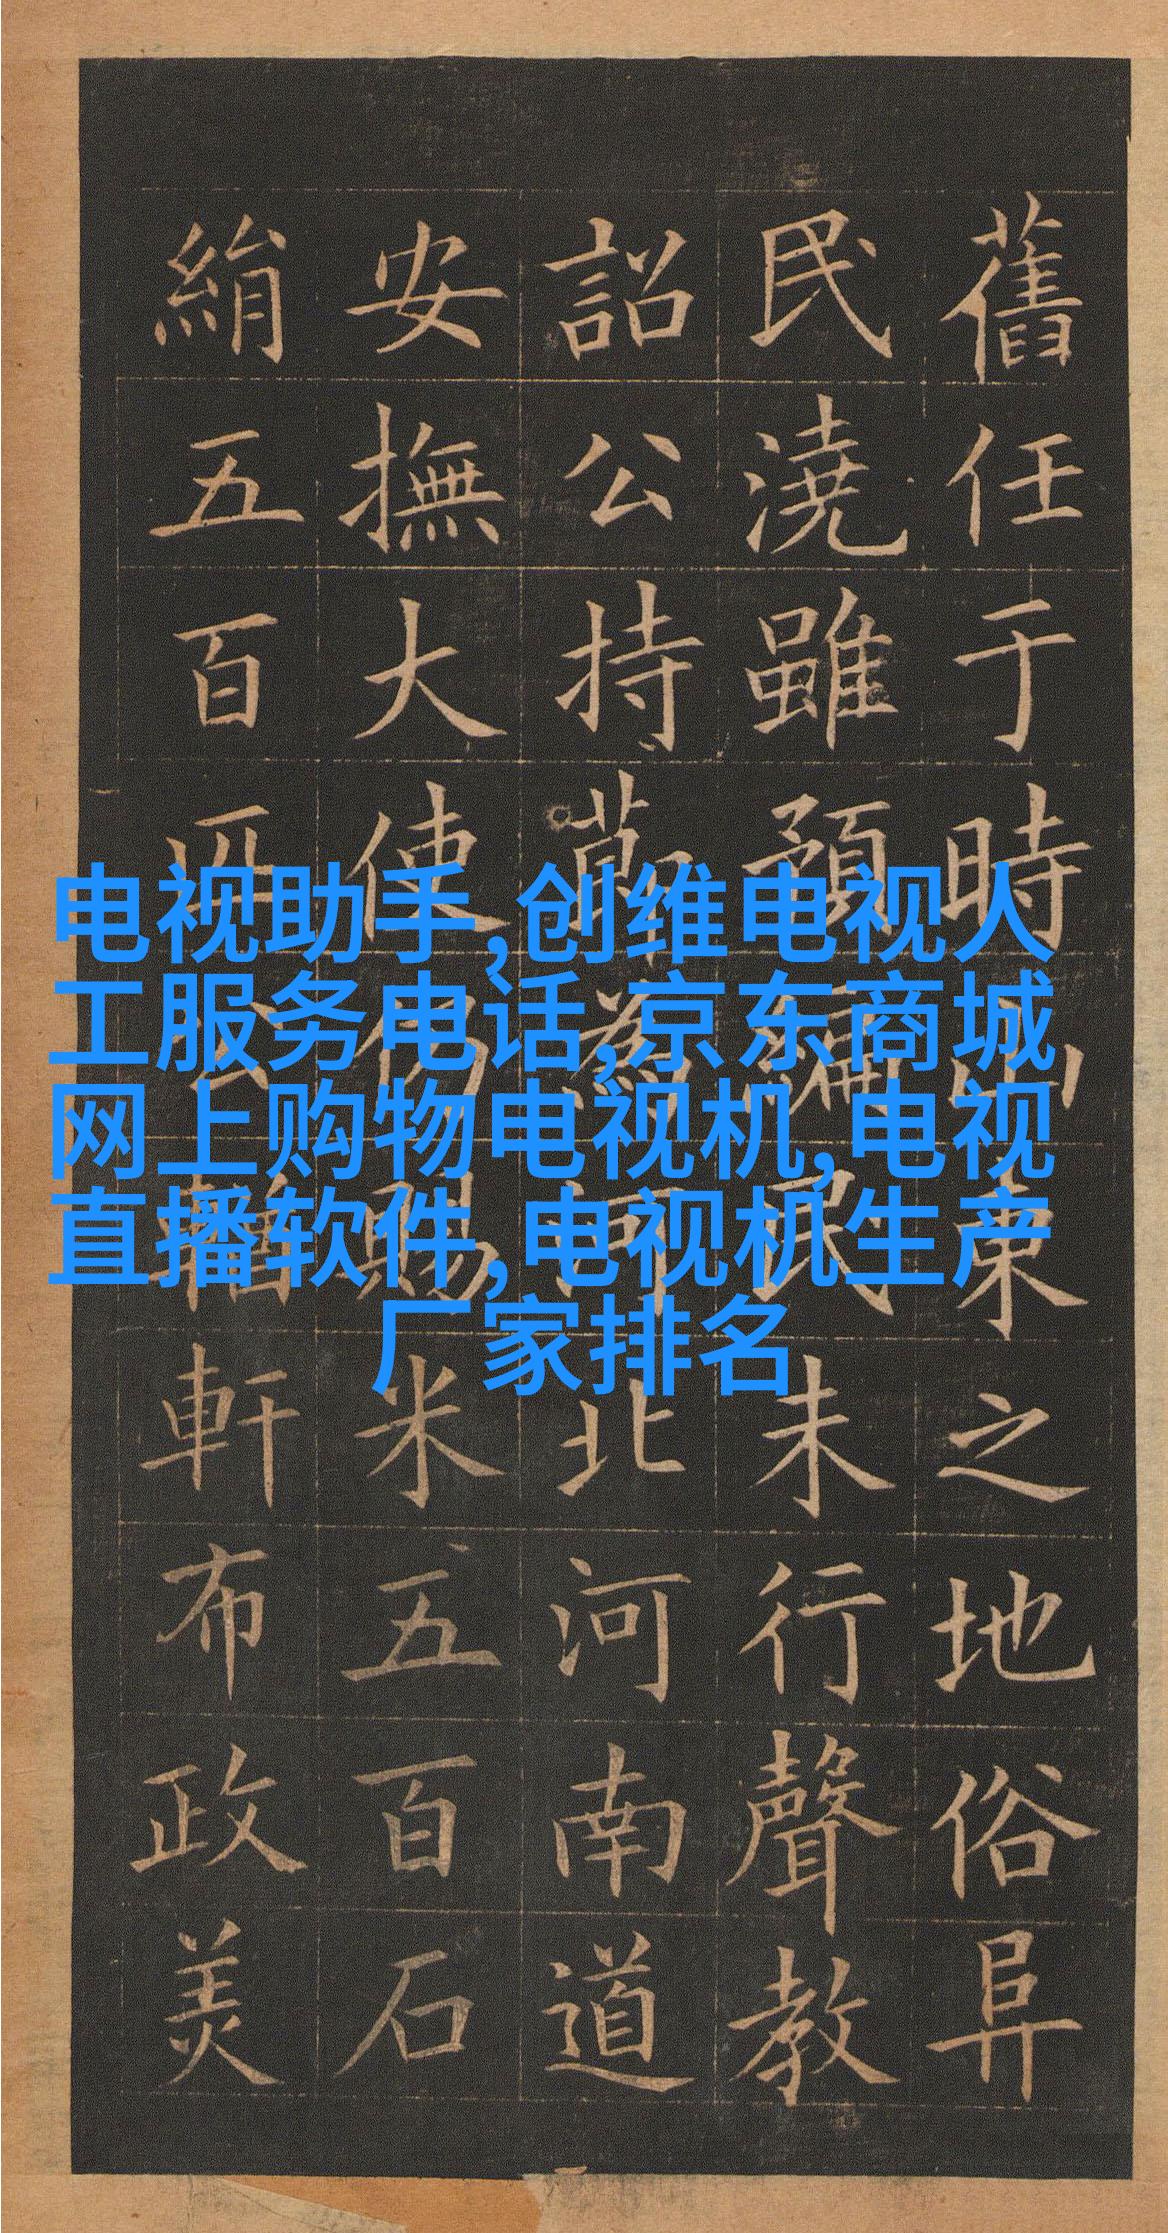 电视助手,创维电视人
工服务电话,京东商城
网上购物电视机,电视
直播软件,电视机生产
厂家排名
舊任于時山東之地俗阜
民澆雖預編民未行聲教
詔公持節為河北河南道
安撫大使仍賜米五百石
絹五百匹公輶軒布政美